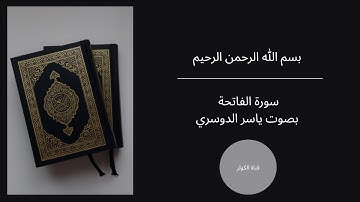 بسم الله الرحمن الرحيم
سورة الفاتحة
بصوت ياسر الدوسري
قناة الكوثر